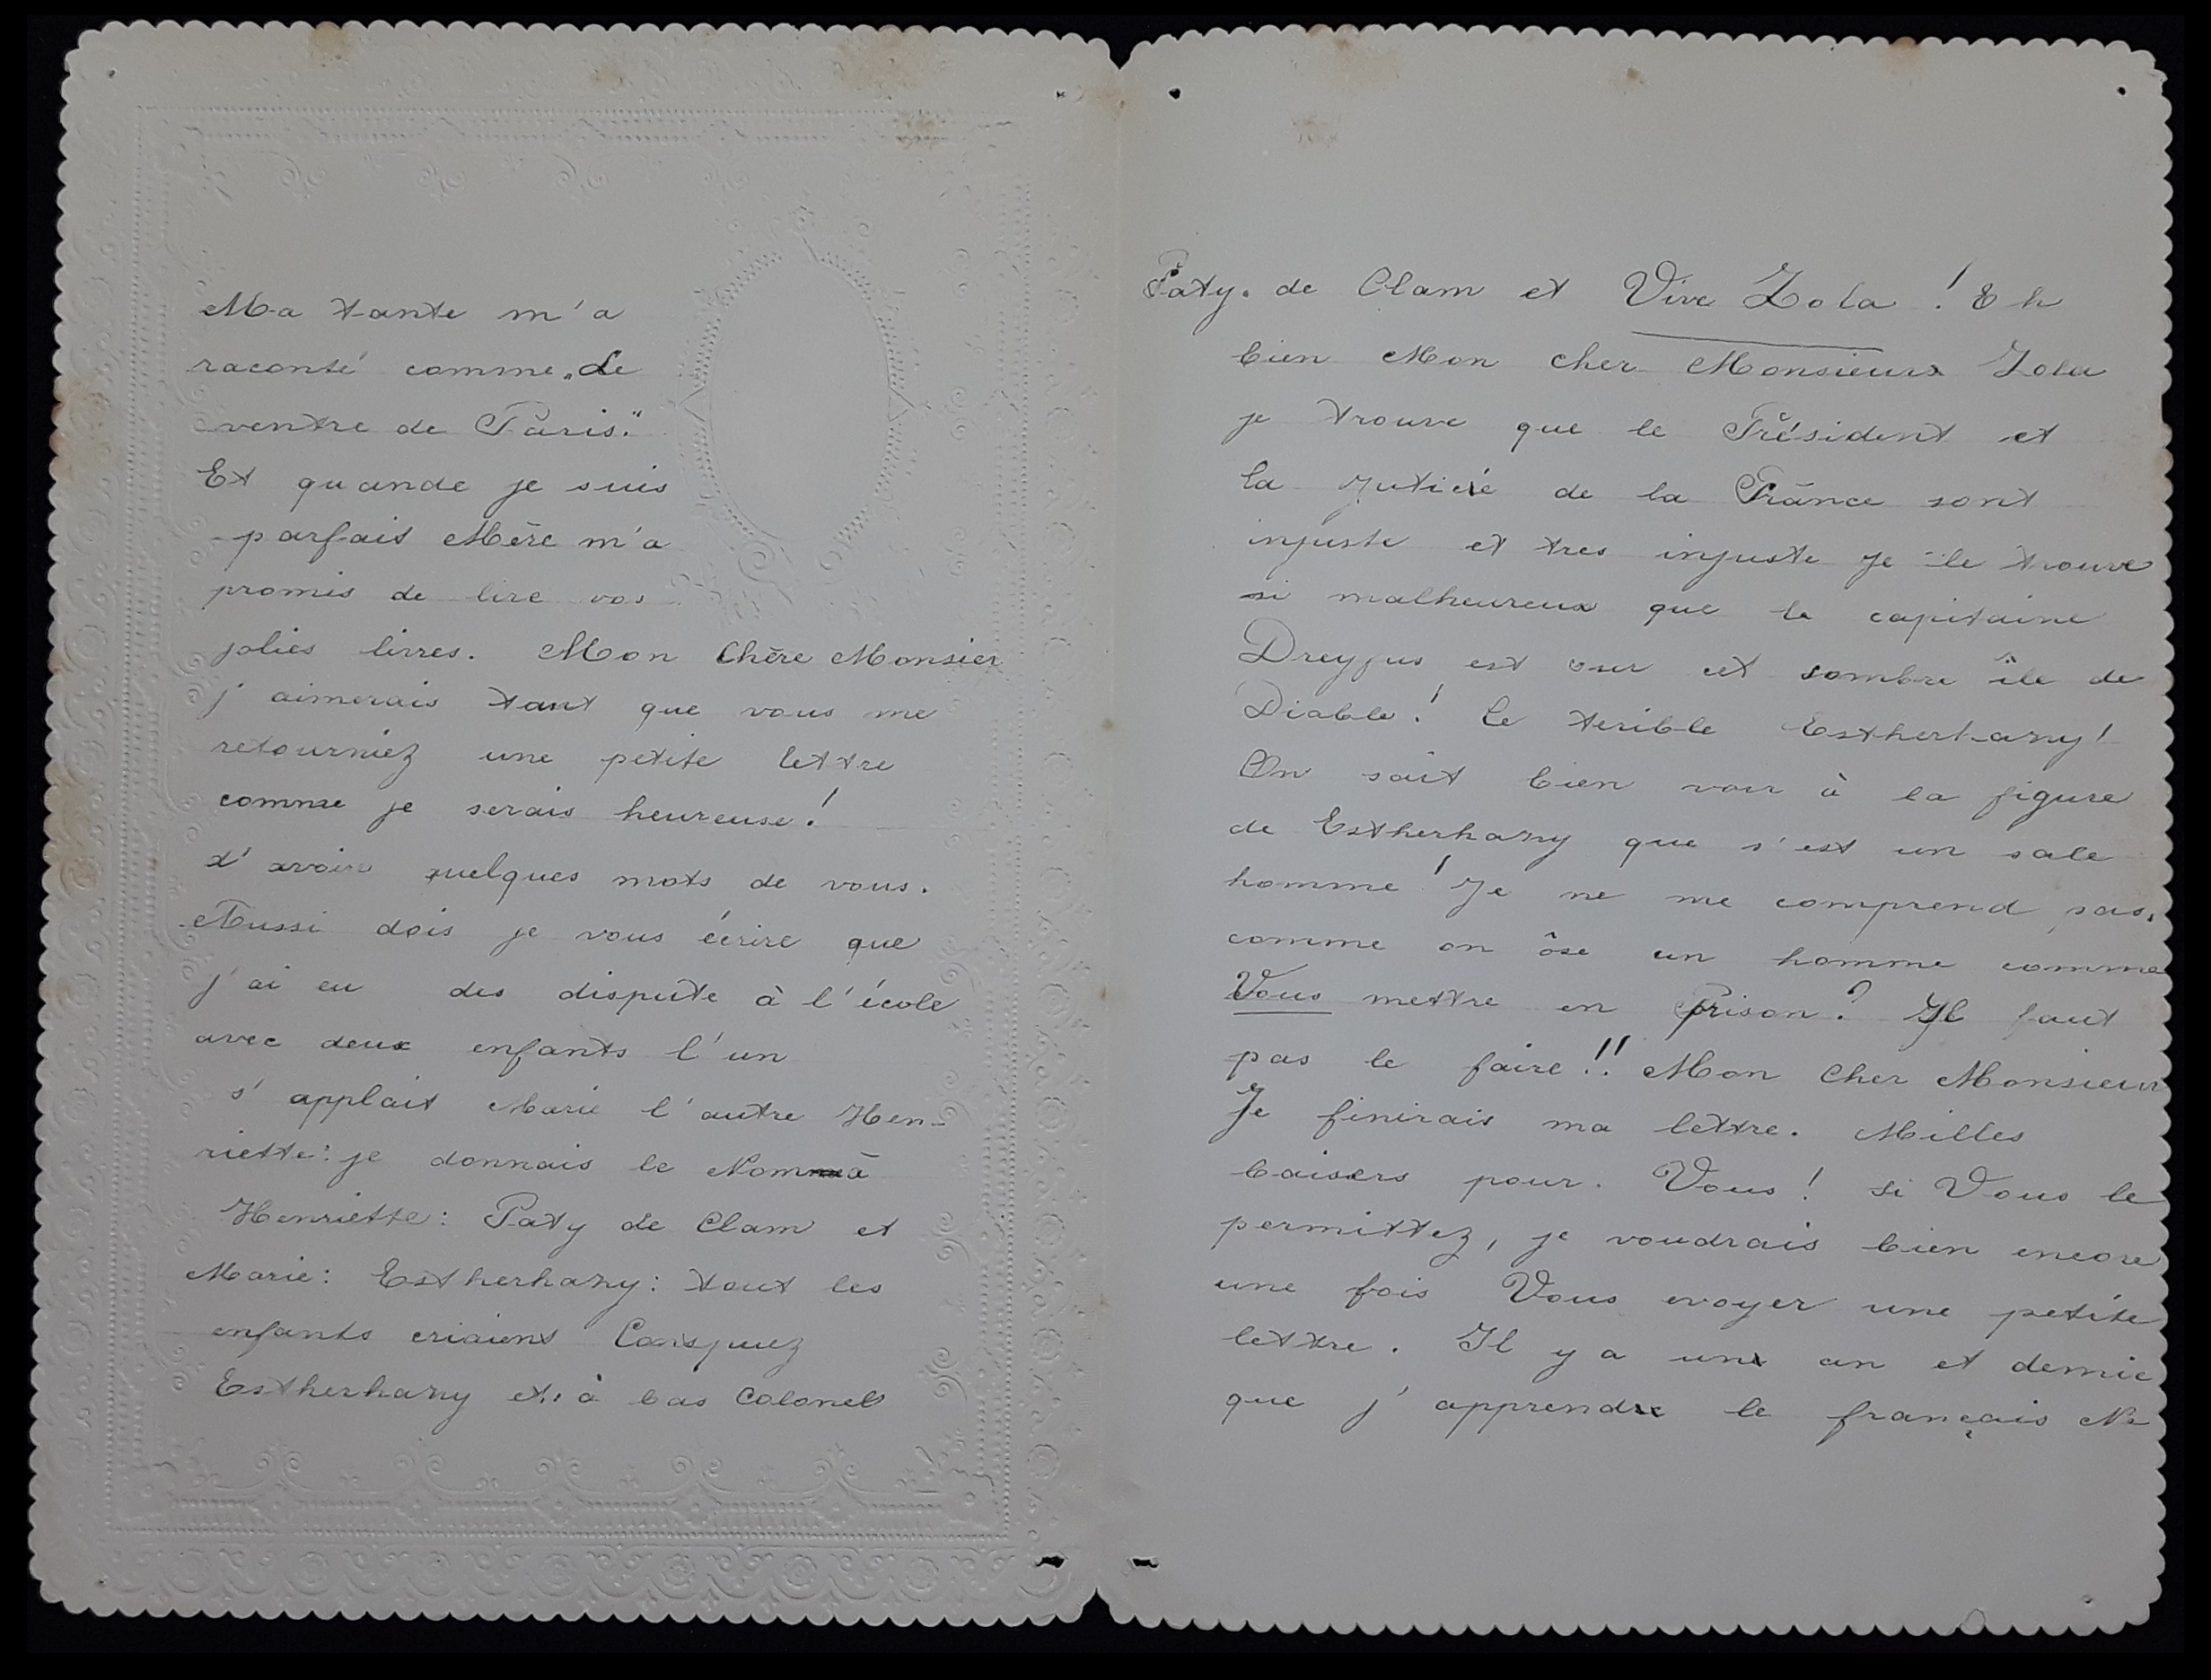 Ma tante m'a
raconté comme „Le
ventre de Paris."
Et quande je suis
parfait Mère m'a
promis de lire vos
jolies livres. Mon Chère Monsier
j'aimerais tant que vous me
retourniez une petite lettre
comme je serais heureuse!
d'avoir quelques mots de vous.
Aussi dois je vous écrire que
j'ai eu des dispute à l'école
avec deux enfants l'un
s'applait Marie l'autre Hen-
riette: je donnais le Nom à
Henriette: Paty de Clam et
Marie: Estherhazy: tout les
enfants criaient Conspuez
Estherhazy et à bas Colonel
Paty. de Clam et Vive Zola! Eh
bien Mon cher Monsieur Zola
je trouve que le Président et
la de la France sont
injuste et tres injuste je le trouve
si malheureux que le capitaine
Dreyfus est sur cet sombre île de
Diable! Le terible Estherhazy!
On sait bien voir à la figure
de Estherhazy que s'est un sale
homme! Je ne me comprend pas,
comme on ôse un homme comme
Vous mettre en Prison? Il faut
pas le faire!! Mon Cher Monsieur
Je finirais ma lettre. Milles
baisers pour. Vous! si Vous le
permittez, je voudrais bien encore
une fois Vous evoyer une petite
lettre. Il y a un an et demie
que j'apprend le français Ne